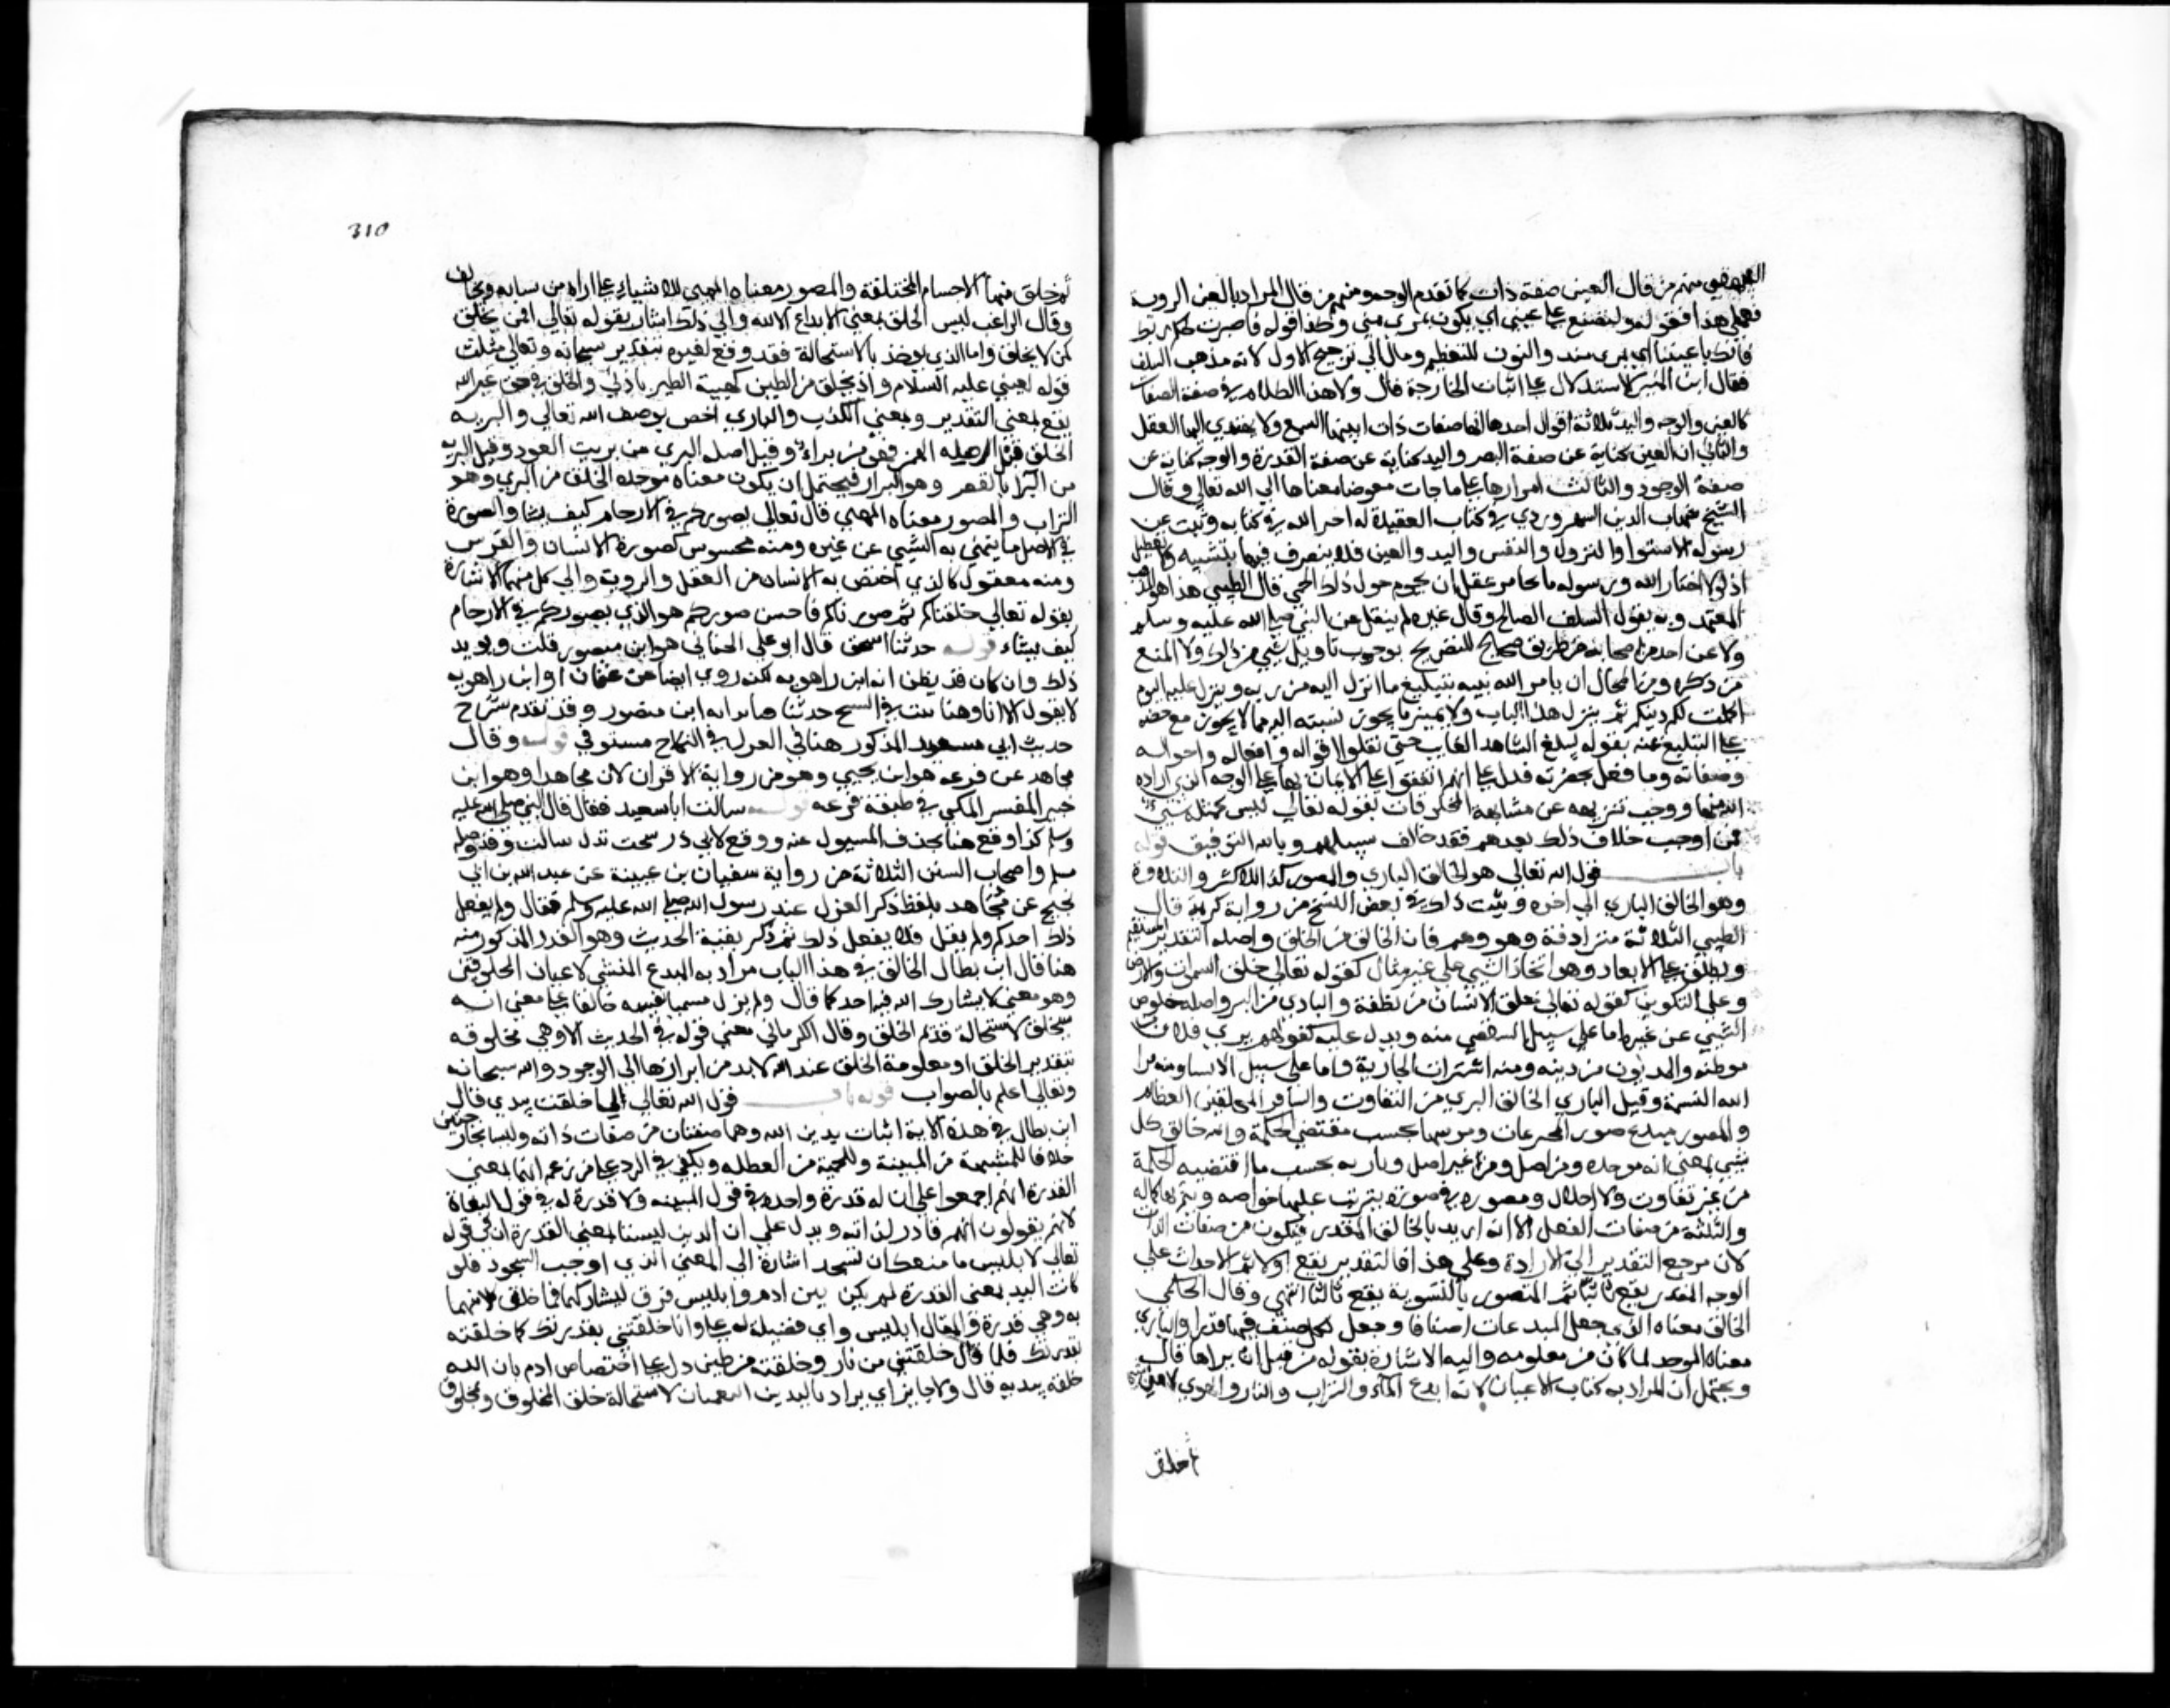 منهم من قال العين صفة ذات كما تقدم الوجه ومنهم من قال المراد بالعين الروية
فعلي هذا فقوله ولتصنع علي عيني اي يكون بمرى مني وكذا قوله فاصبر لحكم ربك
فانك باعيننا اي بمرى منه والنون للتعظيم ومال الي ترجيح الاول لانه مذهب السلف
فقال ابن المنير الاستدلال علي اثبات الجارحة قال ولاهذا الكلام في صفة الصفات
كالعين والوجه واليد ثلاثة اقوال احدها انها صفات ذات اثبتها السمع ولا يهتدي اليها العقل
والثاني ان العين كناية عن صفة البصر واليد كناية عن صفة القدرة والوجه كناية عن
صفة الوجود والثالث امرارها علي ما جات مفوضا معناها الي الله تعالي وقال
الشيخ شهاب الدين السهروردي في كتاب العقيدة له اخبر الله في كتابه وثبت عن
رسوله الاستوا والنزول والنفس واليد والعين فلا يتصرف فيها بتشبيه ولا تعطيل
اذ لولا اخبار الله ورسوله ما تجاسر عقل ان يحوم حول ذلك الحمي قال الطيبي هذا هو المذهب
المعتمد وبه يقول السلف الصالح وقال غيره لم ينقل عن النبي صلي الله عليه وسلم
ولا عن احد من اصحابه من طريق صحيح التصريح بوجوب تاويل شيي من ذلك ولا المنع
من ذكره ومن المحال ان يامر الله نبيه بتبليغ ما انزل اليه من ربه وينزل عليه اليوم
اكملت لكم دينكم ثم ينزل هذا الباب ولا يميز ما يجوز نسبته اليه مما لا يجوز مع حضه
علي التبليغ عنه بقوله ليبلغ الشاهد الغايب حتي نقلوا اقواله وافعاله واحواله
وصفاته وما فعل بحضرته فدل علي انهم اتفقوا علي الايمان بها علي الوجه الذي اراده
الله منها ووجب تنزيهه عن مشابهة المخلوقات بقوله تعالي ليس كمثله شيي
فمن اوجب خلاف ذلك بعدهم فقد خالف سبيلهم وبالله التوفيق قوله
باب قول الله تعالي هو الخالق الباري والمصور كذا للاكثر والتلاوة
وهو الخالق الباري الي اخره وثبت ذلك في بعض النسخ من رواية كريمة قال
الطيبي الثلاثة مترادفة وهو وهم فان الخالق من الخلق واصله التقدير المستقيم
ويطلق علي الابعاد وهو اتخاذ الشيي علي غير مثال كقوله تعالي خلق السموات والارض
وعلي التكوين كقوله تعالي خلق الانسان من نطفة والبادي من البر واصله خلوص
الشيي عن غيره اما علي سبيل التفصي منه ويدل عليه كقولهم بري فلان من
موطنه والمديون من دينه ومنه اشتران الجارية واما علي سبيل الانسا ومنه برا
الله النسمة وقيل الباري الخالق البري من التفاوت والتنافر المخلين العظام
والمصور مبدع صور المخترعات ومرتبها بحسب مقتضي الحكمة والله خالق كل
شيي بمعني انه موجده ومن اصل ومن غير اصل وباريه بحسب ما اقتضيه الحكمة
من غير تفاوت ولا اختلال ومصوره في صورة يترتب عليها خواصه ويتم بها كماله
والثلثة من صفات الفعل الا انه اريد بالخالق المقدر فيكون من صفات الذات
لان مرجع التقدير الي الارادة وعلي هذا فالتقدير يقع اولا ثم الاحداث علي
الوجه المقدر يقع ثانيا ثم التصوير بالتسوية يقع ثالثا انتهي وقال الحليمي
الخالق معناه الذي جعل المبدعات اصنافا وجعل لكل صنف فيها قدرا والباري
معناه الموجد لما كان من معلومه واليه الاشارة بقوله من قبل ان نبراها قال
ويحتمل ان المراد به كتاب الاعيان لانه ابدع الماء والتراب والنار والهوي لا من شي
ثم خلق
310
ثم خلق منها الاجسام المختلفة والمصور معناه المهيي للاشياء علي اراده من تشابه وتخالف
وقال الراغب ليس الخلق بمعني الابداع الا لله والي ذلك اشار بقوله تعالي افمن يخلق
كمن لا يخلق واما الذي يوخذ بالاستحالة فقد وقع لغيره بتقدير سبحانه وتعالي مثلث
قوله لعيسي عليه السلام واذ تخلق من الطين كهيية الطير باذني والخلق في حق غير الله
يقع بمعني التقدير وبمعني الكذب والباري اخص بوصف الله تعالي والبرية
الخلق قيل اصله الهمز فهي من براء وقيل اصله البري من بريت العود وقيل البرية
من البرا بالقصر وهو التراب فيحتمل ان يكون معناه موجد الخلق من البري وهو
التراب والمصور معناه المهيي قال تعالي يصوركم في الارحام كيف يشا والصورة
في الاصل ما يتميز به الشيي عن غيره ومنه محسوس كصورة الانسان والفرس
ومنه معقول كالذي اختص به الانسان من العقل والروية والي كل منهما الاشارة
بقوله تعالي خلقناكم ثم صورناكم فاحسن صوركم هو الذي يصوركم في الارحام
كيف يشاء قوله حدثنا اسحق قال ابو علي الجياني هو ابن منصور قلت ويويد
ذلك وان كان قد يظن انه ابن راهويه لكنه روي ايضا عن عفان او ابن راهويه
لا يقول الا انا وهنا ثبت في النسخ حدثنا فتايد انه ابن منصور وقد تقدم شرح
حديث ابي سعيد المذكور هنا في العزل في النكاح مستوفي قوله وقال
مجاهد عن قزعه هو ابن يحيي وهو من رواية الاقران لان مجاهدا وهو ابن
جبير المفسر المكي في طبقة قزعه قوله سالت ابا سعيد فقال قال النبي صلي الله عليه
وسلم كذا وقع هنا بحذف المسيول عنه ووقع لابي ذر سمعت بدل سالت وقد وصله
مسلم واصحاب السنن الثلاثة من رواية سفيان بن عيينة عن عبد الله بن ابي
نجيح عن مجاهد بلفظ ذكر العزل عند رسول الله صلي الله عليه وسلم فقال ولم يفعل
ذلك احدكم ولم يقل فلا يفعل ذلك ثم ذكر بقية الحديث وهو القدر المذكور منه
هنا قال ابن بطال الخالق في هذا الباب مراد به المبدع المنشي لاعيان المخلوقين
وهو معني لا يشارك الله فيه احد كما قال ولم يزل مسميا نفسه خالقا علي معني انه
سيخلق لاستحالة قدم الخلق وقال الكرماني معني قوله في الحديث الا وهي مخلوقه
بتقدير الخلق او معلومة الخلق عند الله لا بد من ابرازها الي الوجود والله سبحانه
وتعالي اعلم بالصواب قوله باب قول الله تعالي لما خلقت بيدي قال
ابن بطال في هذه الاية اثبات يدين الله وهما صفتان من صفات ذاته وليسا بجارحتين
خلافا للمشبهة من المثبتة وللجهمية من المعطله ويكفي في الرد علي من زعم انها بمعني
القدرة انهم اجمعوا علي ان له قدرة واحده في قول المثبته ولا قدرة له في قول النفاة
لانهم يقولون انهم قادر لذاته ويدل علي ان اليدين ليستا بمعني القدرة ان في قوله
تعالي لابليس ما منعك ان تسجد اشارة الي المعني الذي اوجب السجود فلو
كانت اليد بمعني القدرة لم يكن بين ادم وابليس فرق ليشاركهما فيما خلق كل منهما
به وهي قدرة ولقال ابليس واي فضيلة له علي وانا خلقتني بقدرتك كما خلقته
بقدرتك فلما قال خلقتني من نار وخلقته من طين دل علي اختصاص ادم بان الله
خلقه بيديه قال ولا جايز اي يراد باليدين النعمتان لاستحالة خلق المخلوق ومخلوق